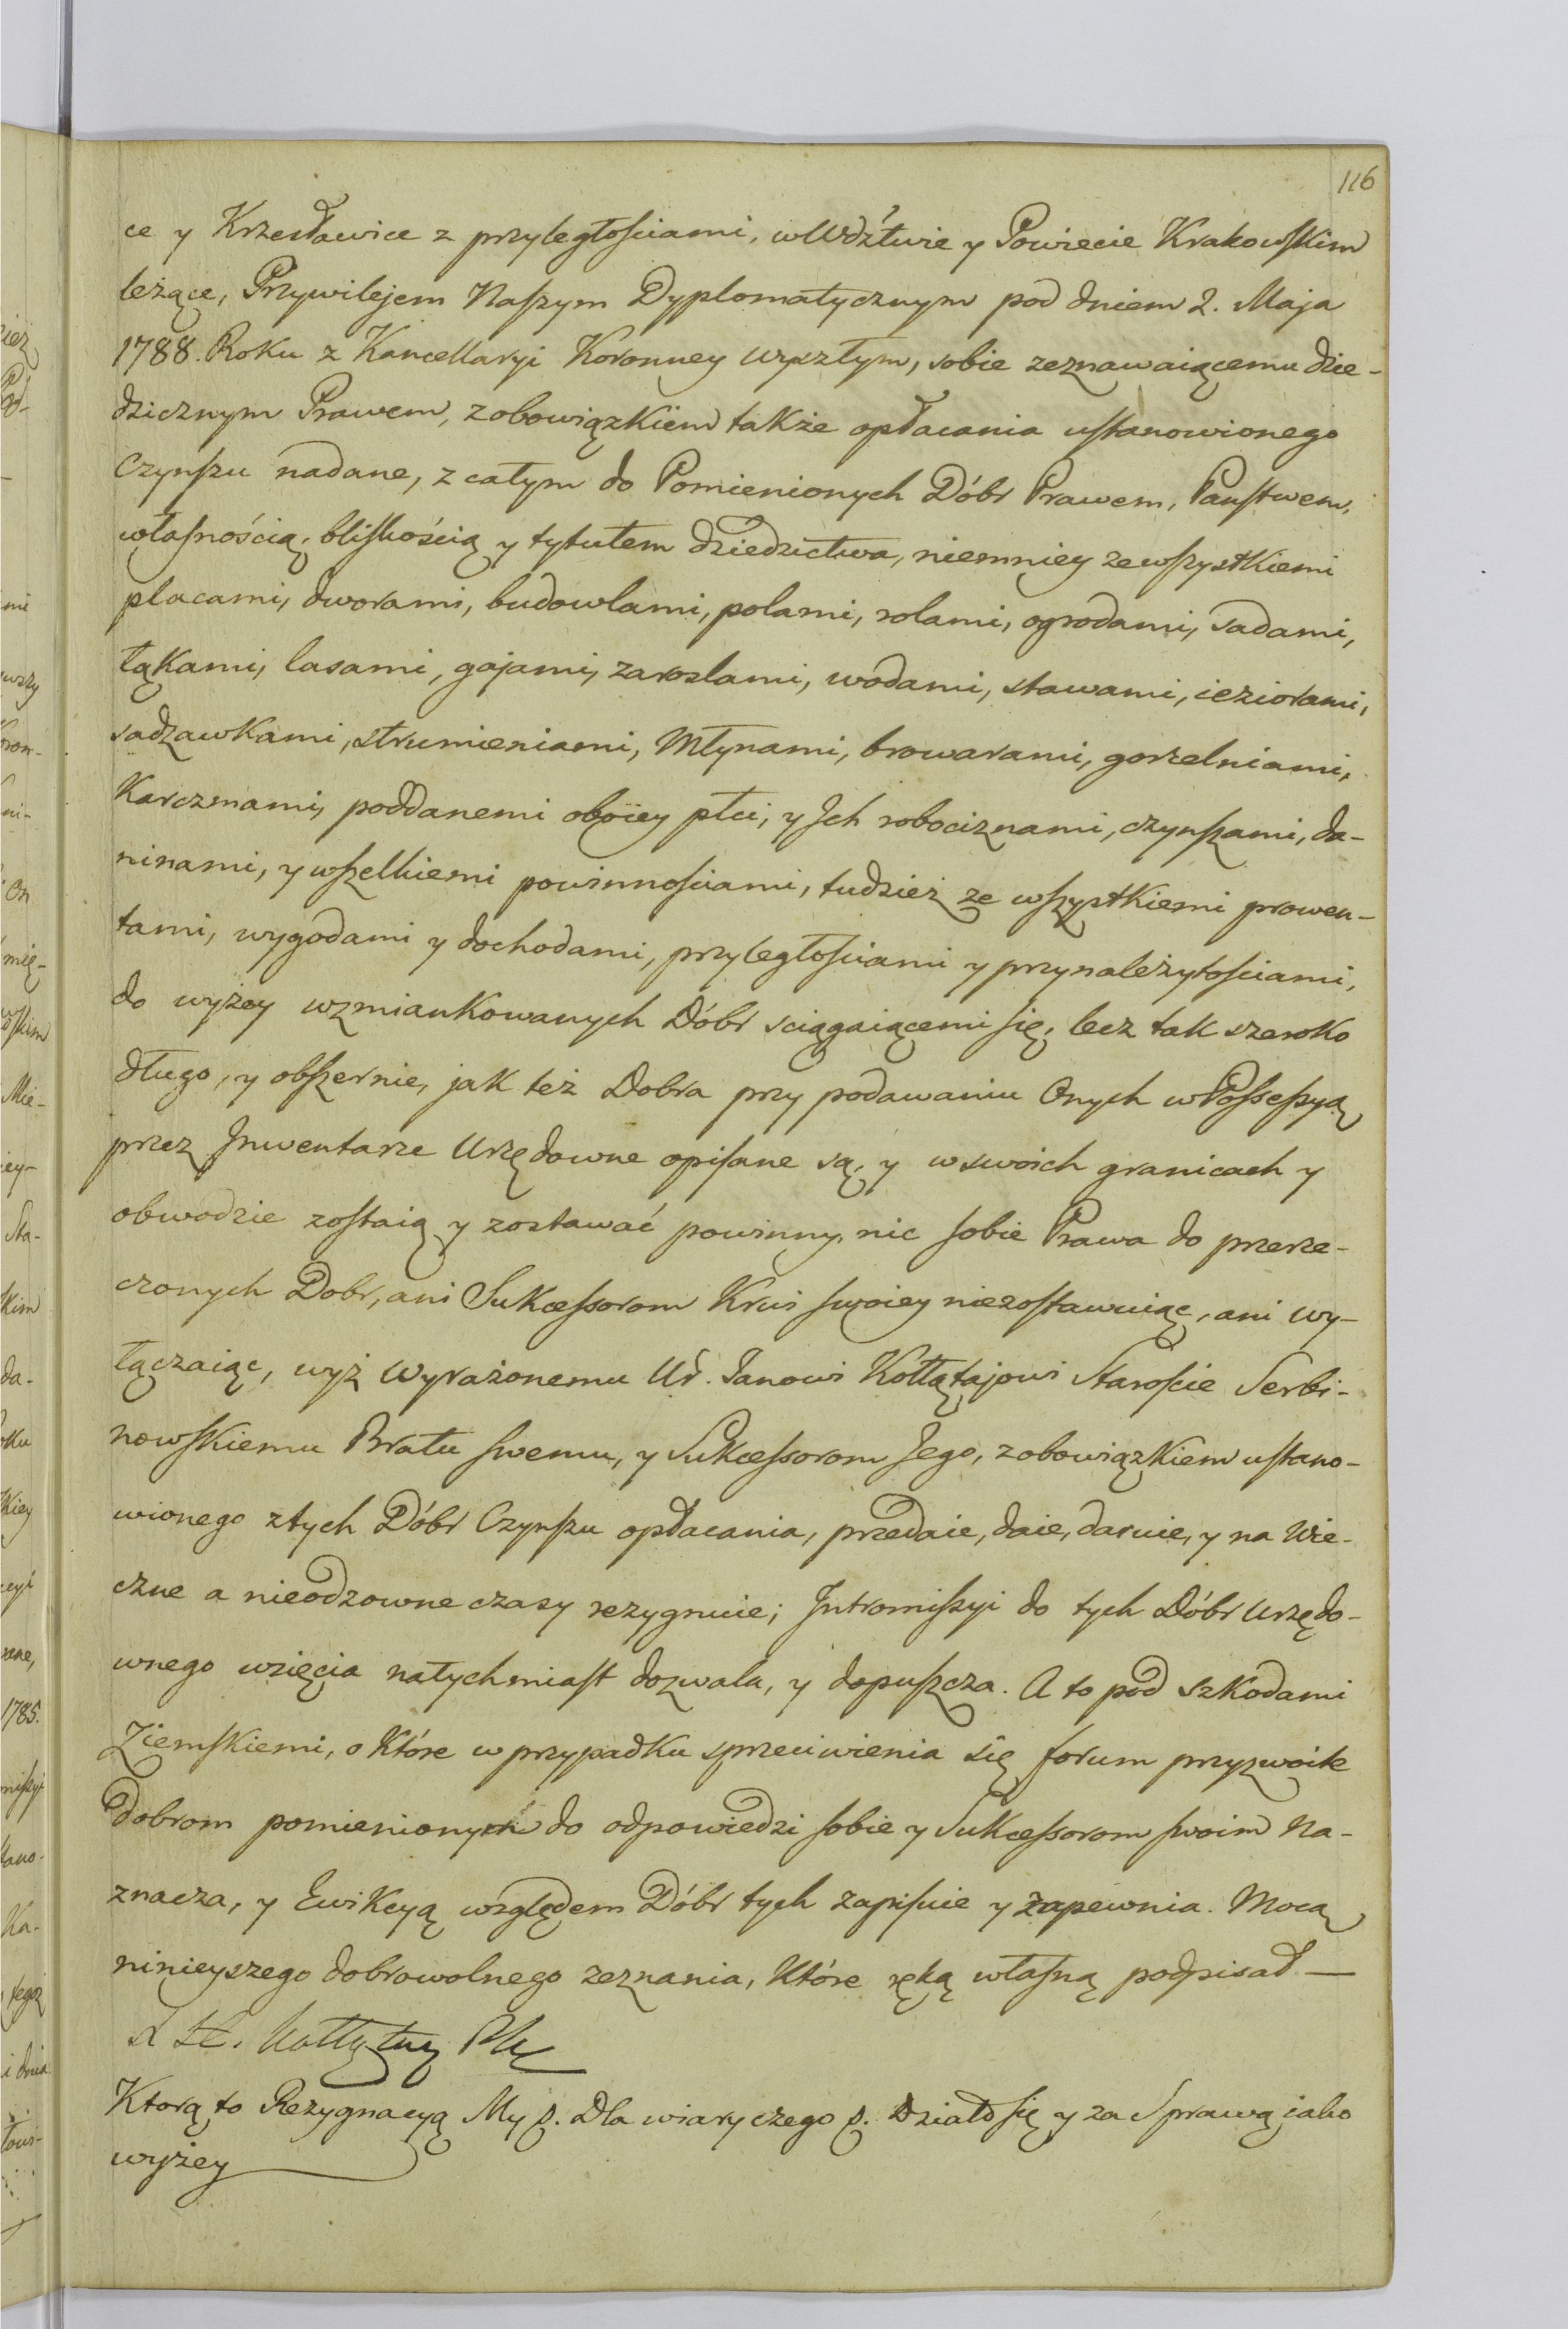 116
ce y Krzesławice z przyległościami, w Wdźtwie y Powiecie Krakowskim
leżące, Przywilejem Naszym Dyplomatycznym pod dniem 2. Maja
1788. Roku z Kancellaryi Koronney wyszłym, sobie zeznawaiącemu dzie-
dzicznym Prawem, z obowiązkiem także opłacania ustanowionego
Czynszu nadane, z całym do Pomienionych Dóbr Prawem, Państwem,
własnością, bliskością y tytułem dziedzictwa, niemniey ze wszystkiemi
placami, dworami, budowlami, polami, rolami, ogrodami, sadami,
łąkami, lasami, gajami, zaroslami, wodami, stawami, ieziorami,
sadzawkami, strumieniami, Młynami, browarami, gorzelniami,
Karczmami, poddanemi oboiey płci, y Jch robociznami, czynszami, da-
ninami, y wszelkiemi powinnościami, tudzież ze wszystkiemi prowen-
tami, wygodami y dochodami, przyległościami y przynależytościami,
do wyżey wzmiankowanych Dóbr sciągaiącemi się, lecz tak szeroko
długo, y obszernie, jak też Dobra przy podawaniu Onych w Possessyą
przez Jnwentarze Urzędowne opisane są, y w swoich granicach y
obwodzie zostaią y zostawać powinny, nic sobie Prawa do przerze-
czonych Dobr, ani Sukcessorom Krwi swoiey niezostawuiąc, ani wy-
łączaiąc, wyż wyrażonemu Ur. Janowi Kołłątajowi Staroście Serbi-
nowskiemu Bratu swemu, y Sukcessorom Jego, z obowiązkiem ustano-
wionego z tych Dóbr Czynszu opłacania, przedaie, daie, daruie, y na Wie-
czne a nieodzowne czasy rezygnuie; Jntromissyi do tych Dóbr Urzędo-
wnego wzięcia natychmiast dozwala, y dopuszcza. A to pod szkodami
Ziemskiemi, o które w przypadku sprzeciwienia się forum przyzwoite
Dobrom pomienionych do odpowiedzi sobie y Sukcessorom swoim Na-
znacza, y Ewikcyą względem Dóbr tych zapisuie y zapewnia. Mocą
ninieyszego dobrowolnego zeznania, które ręką własną podpisał —
Kołłątay
Ktorą to Rezygnacyą My p. Dla wiary czego p. Działo się y za Sprawą jako
wyżey